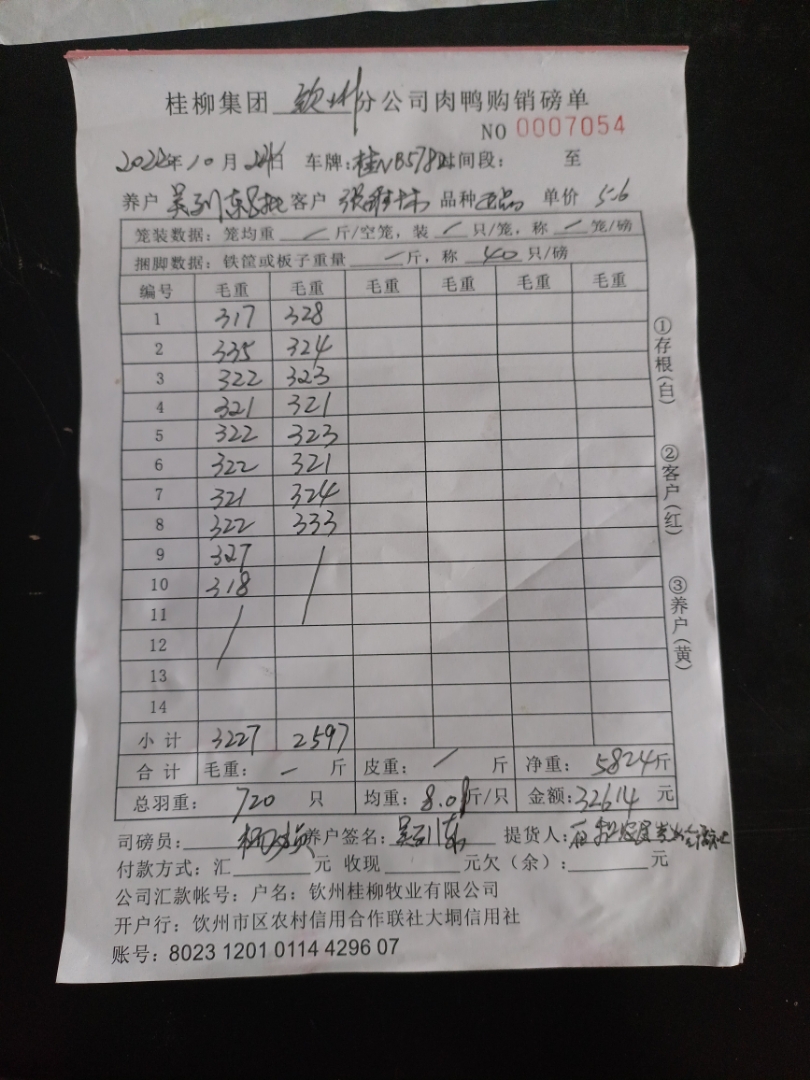 桂柳集团 钦州 分公司肉鸭购销磅单
NO 0007054
2022年10月24日 车牌:桂NB578 时间段: 至
养户 吴 东 客户 张 品种 正品 单价 5.6
笼装数据: 笼均重 / 斤/空笼, 装 / 只/笼, 称 / 笼/磅
捆脚数据: 铁筐或板子重量 / 斤, 称 40 只/磅
编号 毛重 毛重 毛重 毛重 毛重 毛重
1 317 328
2 335 324
3 322 323
4 321 321
5 322 323
6 322 321
7 321 324
8 322 333
9 327 /
10 318
11 /
12
13
14
小计 3227 2597
合计 毛重: - 斤 皮重: / 斤 净重: 5824斤
总羽重: 720 只 均重: 8.09斤/只 金额:32614 元
司磅员: 养户签名: 吴 东 提货人:
付款方式: 汇 元 收现 元欠(余): 元
公司汇款帐号: 户名: 钦州桂柳牧业有限公司
开户行: 钦州市区农村信用合作联社大垌信用社
账号: 8023 1201 0114 4296 07
①存根(白)
②客户(红)
③养户(黄)